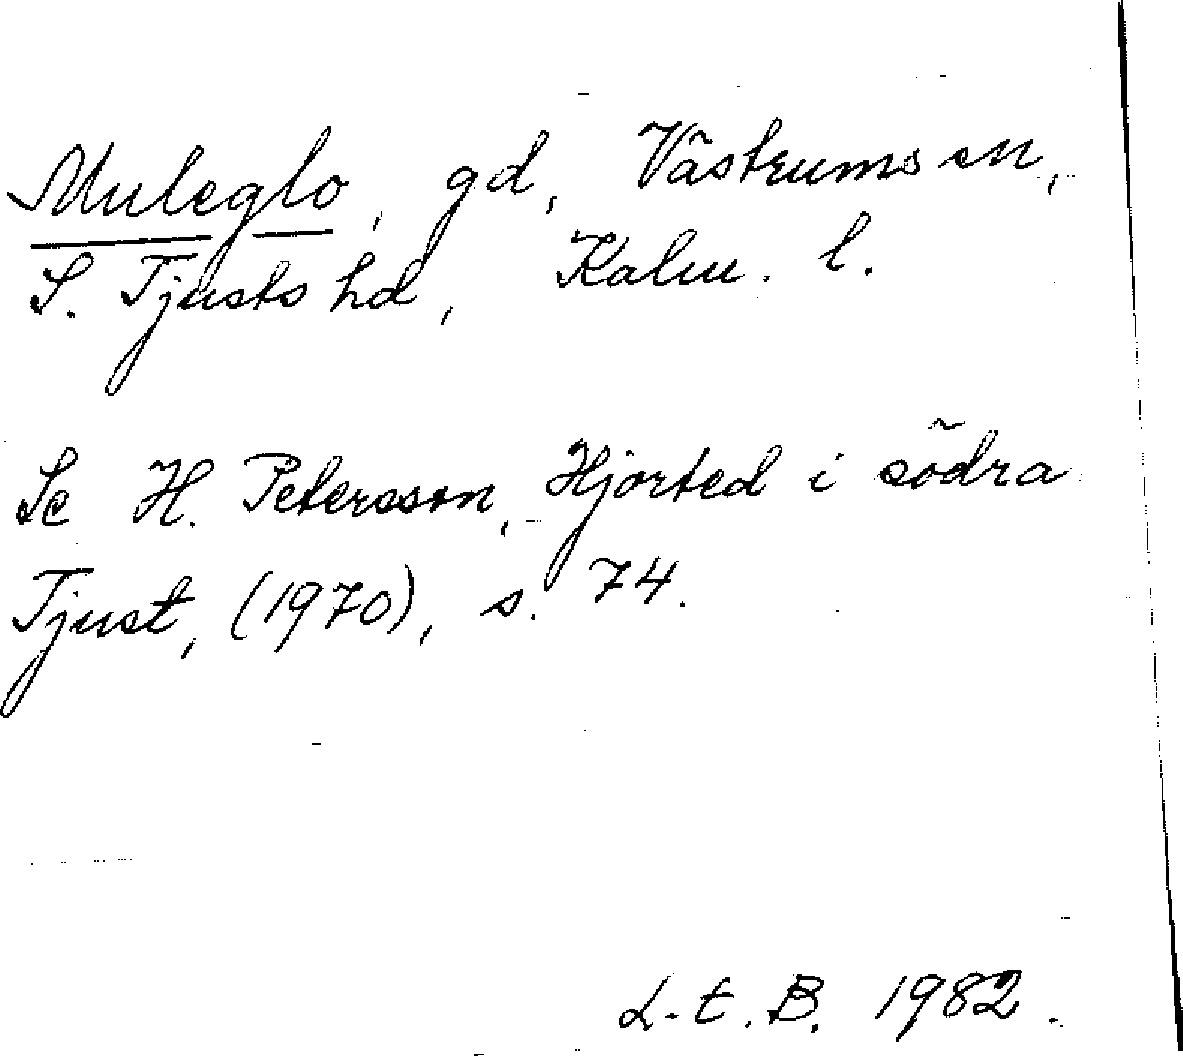 Muleglo, gd, Västrums sn,
S. Tjusts hd, Kalm. l.
Se H. Petersson, Hjorted i södra
Tjust, (1970), s. 74.
L.t.B. 1982.